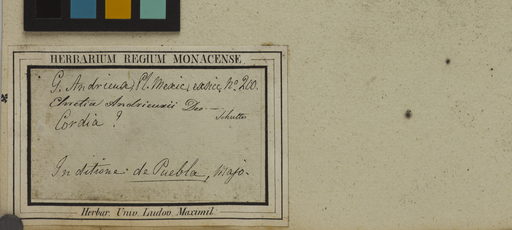 HERBARIUM REGIUM MONACENSE
G. Andrieux, Pl. Mexic. exsicc. No. 200.
Ehretia Andrieuxii Dec —
Cordia ?
In ditione de Puebla, Majo.
Herbar. Univ. Ludov. Maximil